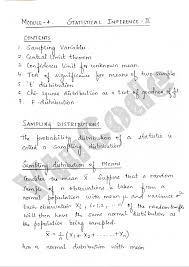 MODULE-4. STATISTICAL INFERENCE - II
CONTENTS
1. Sampling Variable
2. Central limit theorem
3. Confidence Limit for unknown mean
4. Test of significance for means of two sample
5. 't' distribution
6. Chi square distribution as a test of goodness of fit
7. F distribution
SAMPLING DISTRIBUTION
The probability distribution of a statistic is
called a Sampling distribution
Sampling Distribution of Means
Consider the mean x̄. Suppose that a random
sample of n observations is taken from a
normal population with mean μ and variance σ²
Each observation X₁, of the random sample
will then have the same normal distribution as
the population being sampled.
x̄ = 1/n (x₁ + x₂ + ... + xₙ)
has a normal distribution with mean